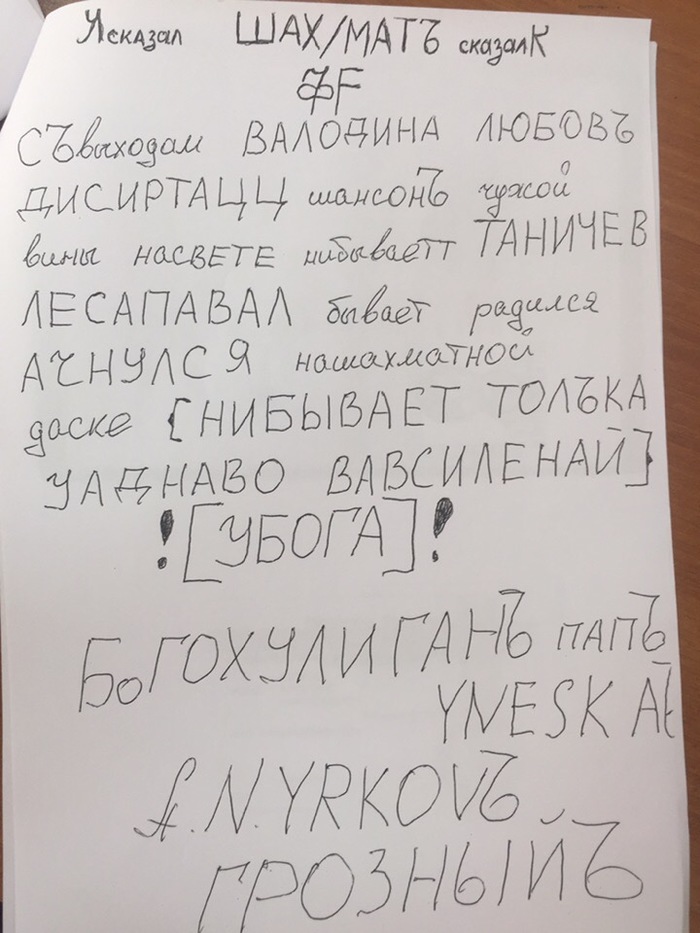 Ясказал ШАХ/МАТЪ сказалК
ФF
СЪвыходам ВАЛОДИНА ЛЮБОВЪ
ДИСИРТАЦЦ шансонЪ чужой
вины насвете нибываетт ТАНИЧЕВ
ЛЕСАПАВАЛ бывает радился
АЧНУЛСЯ нашахматной
даске [НИБЫВАЕТ ТОЛЪКА
УАДНАВО ВАВСИЛЕНАЙ]
![УБОГА]!
БоГОХУЛИГАНЪ ПАПЪ
YNESK
A.N.YRKOVЪ
ГРОЗНЫЙЪ